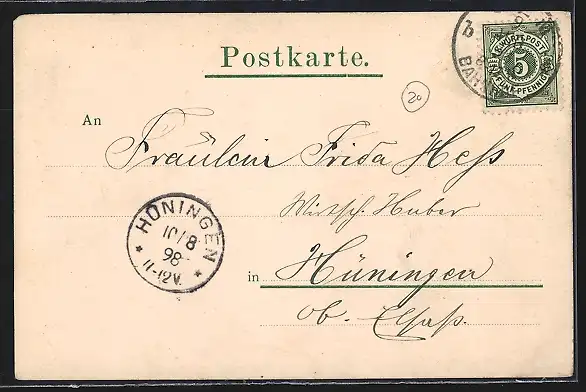 Postkarte.
b
BAH
K. WÜRTT. POST
5
FÜNF PFENNIG
20
An
Fräulein Frida Heß
Wirtsch. Huber
HÜNINGEN
10/8
98
11-12V.
in Hüningen
Ob. Elsaß.